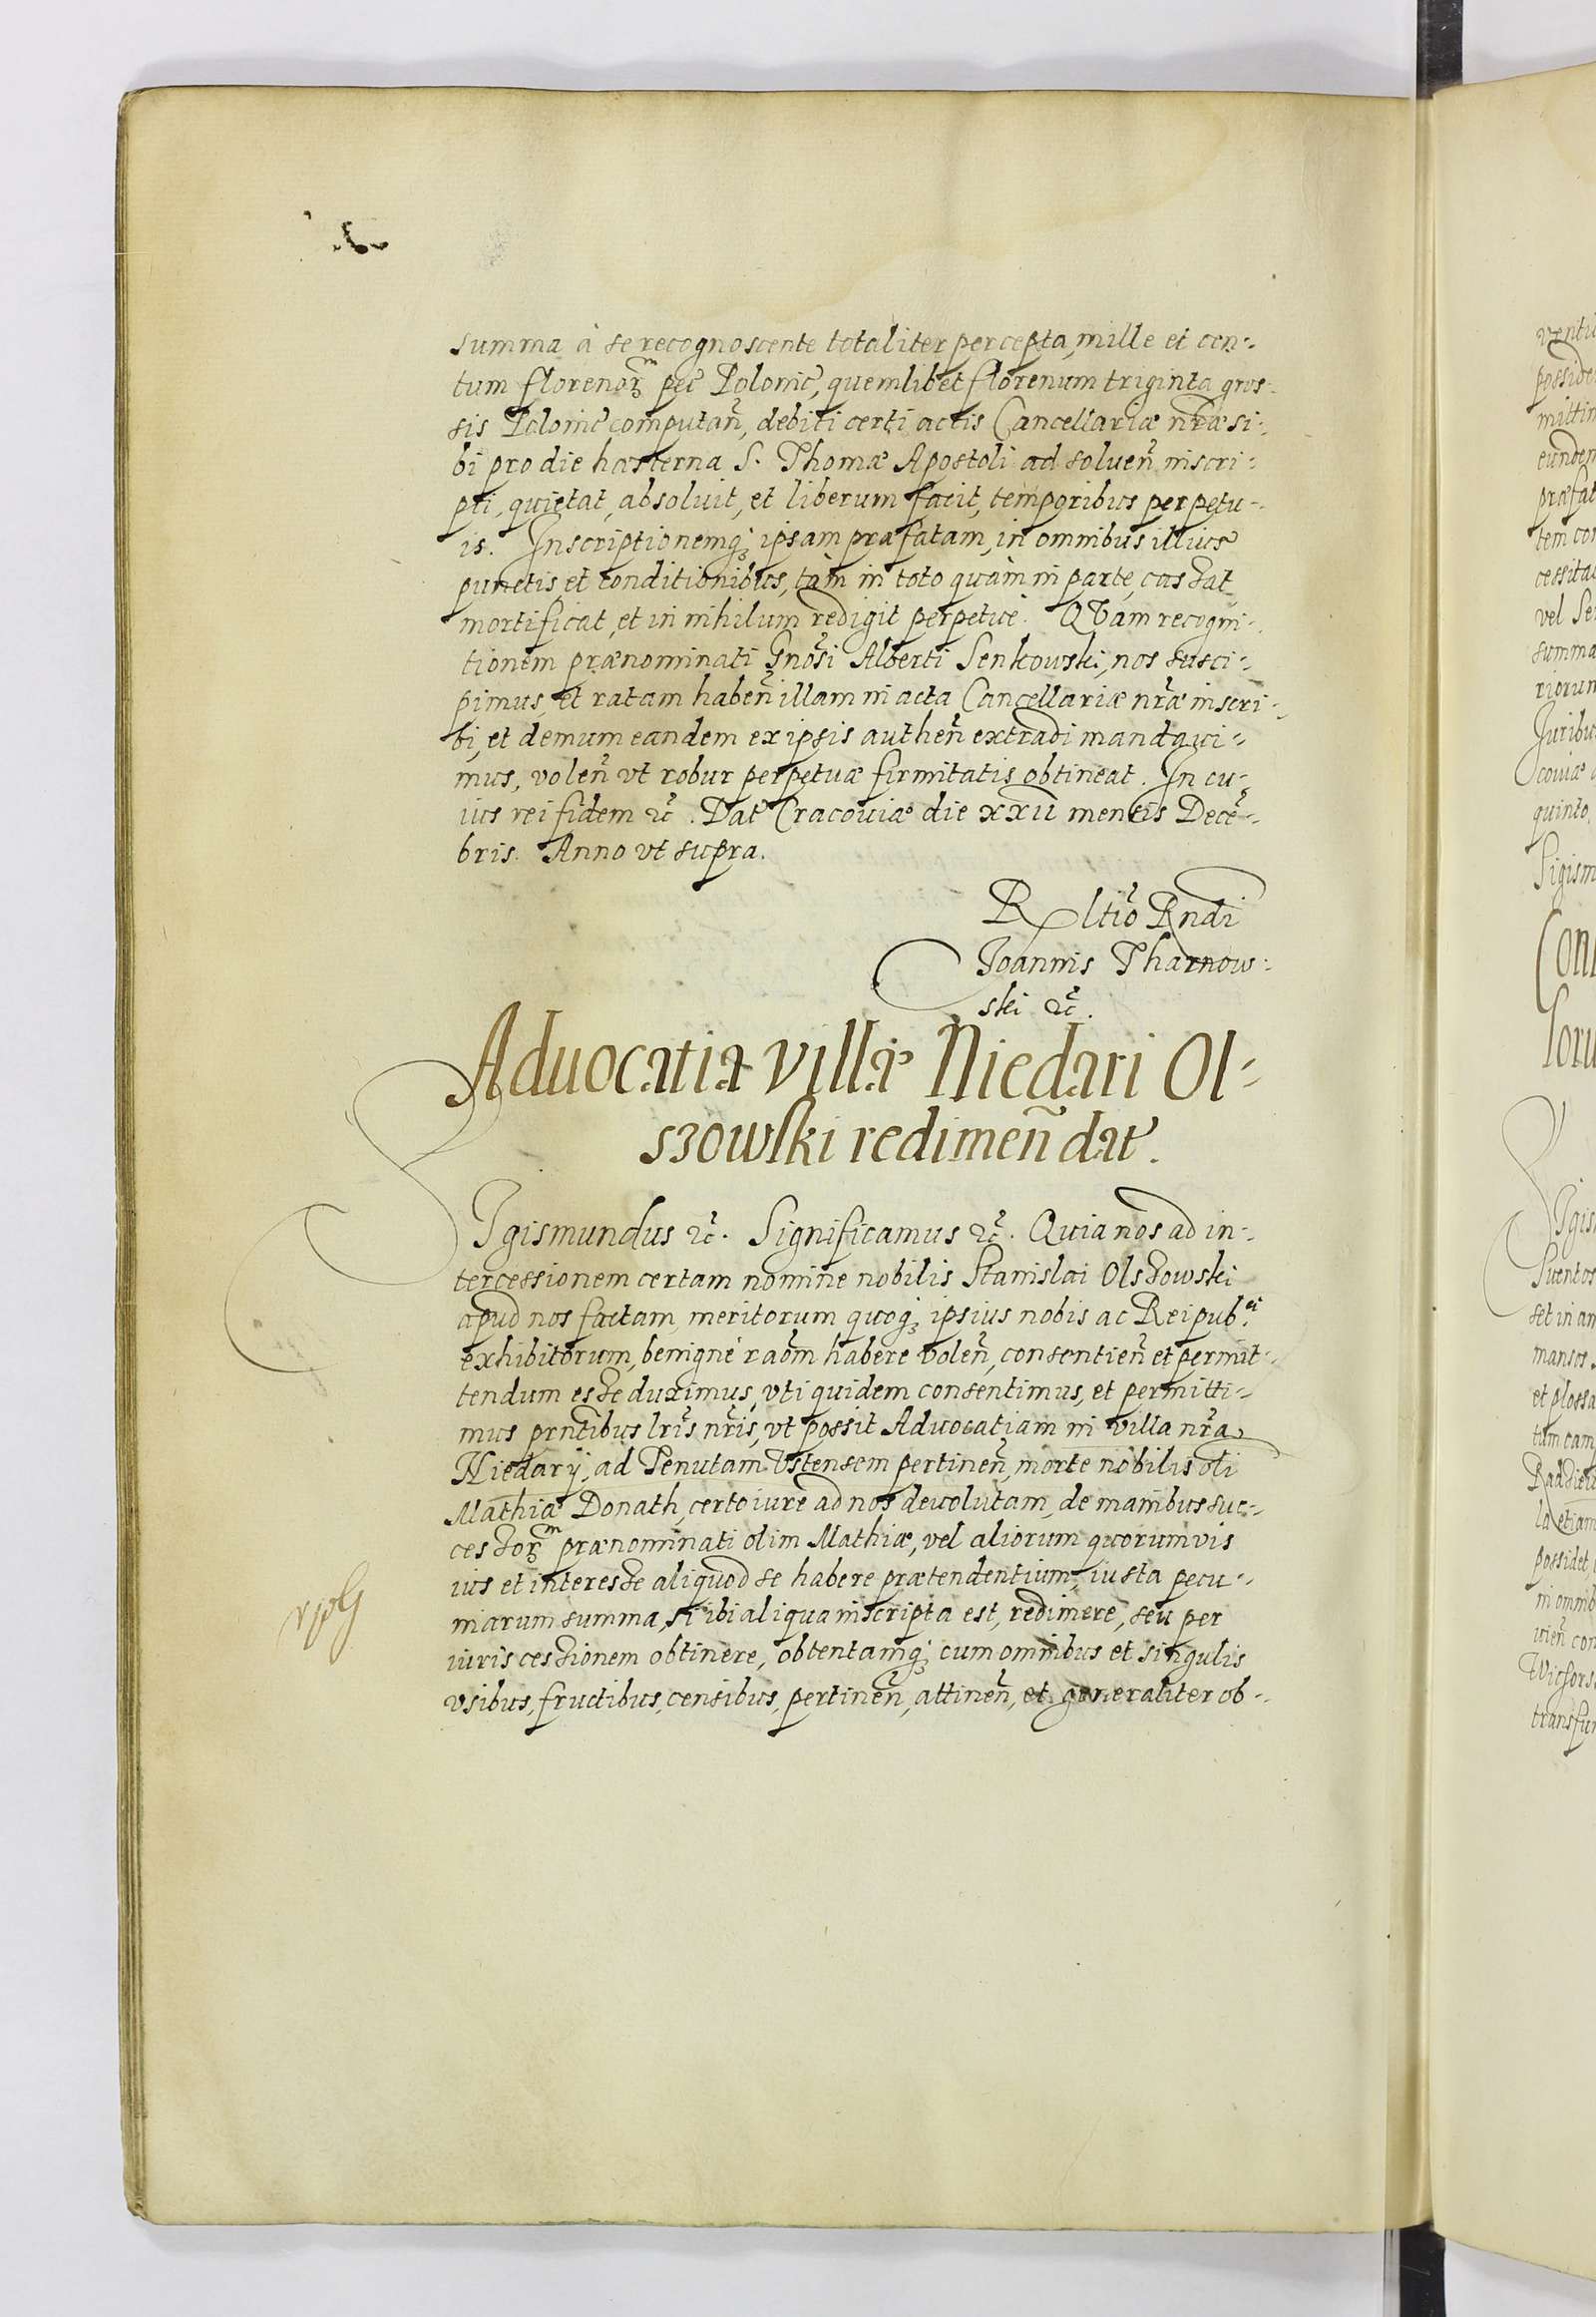 summa à se recognoscente totaliter percepta, mille et cen-
tum florenorͫ pec̃ Polonic̃, quemlibet florenum triginta gros-
sis Polonic̃ computan̄, debiti certi actis Cancellariæ nr̃æ si-
bi pro die hæsterna S. Thomæ Apostoli ad soluen̄ inscri-
pti, quietat, absoluit, et liberum facit, temporibus perpetu-
is. Inscriptionemq; ipsam præfatam, in omnibus illius
punctis et conditionibus, tàm in toto quàm in parte, cassat
mortificat, et in nihilum redigit perpetuè. QVam recogni-
tionem prænominati Gnõsi Alberti Senkowski, nos susci-
pimus, et ratam haben̄ illam in acta Cancellariæ nr̃æ inscri-
bi, et demum eandem ex ipsis authen̄ extradi mandaui-
mus, volen̄ vt robur perpetuæ firmitatis obtineat. In cu-
ius rei fidem ꝛc̃. Dat Cracouiæ die xxii mensis Decẽ-
bris. Anno vt supra.
Rltiõ Rndi
Joannis Tharnow-
ski ꝛc̃.
Aduocatia villæ Niedari Ol-
szowski redimen̄ dat.
SIgismundus ꝛc̃. Significamus ꝛc̃. Quia nos ad in-
tercessionem certam nomine nobilis Stanislai Olszowski
apud nos factam, meritorum quoq; ipsius nobis ac Reipub.ͨͥ
exhibitorum, benignè raõm habere volen̄, consentien̄ et permit-
tendum esse duximus, vti quidem consentimus, et permitti-
mus prñtibus lr̃is nr̃is, vt possit Aduocatiam in villa nr̃a
Niedary, ad Tenutam Vstensem pertinen̄, morte nobilis oli
Mathiæ Donath, certo iure ad nos deuolutam, de manibus suc-
cessorͫ prænominati olim Mathiæ, vel aliorum quorumvis
ius et interesse aliquod se habere prætendentium, iusta pecu-
niarum summa, si ibi aliqua inscripta est, redimere, seu per
iuris cessionem obtinere, obtentamq; cum omnibus et singulis
vsibus, fructibus, censibus, pertinen̄, attinen̄, et generaliter ob-